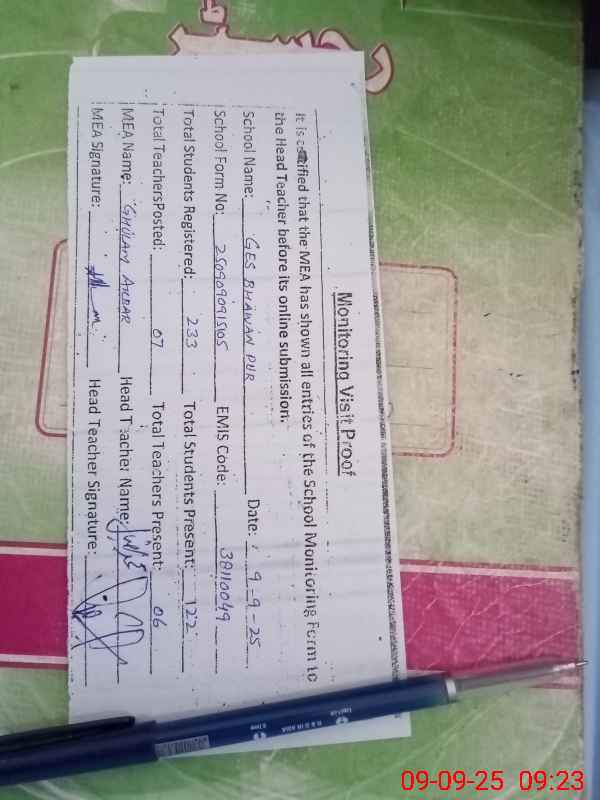 رجسٹر
Monitoring Visit Proof
It is certified that the MEA has shown all entries of the School Monitoring Form to
the Head Teacher before its online submission.
School Name: GES BHAWAN PUR Date: 9-9-25
School Form No: EMIS Code: 38110049
Total Students Registered: 233 Total Students Present: 122
Total TeachersPosted: 07 Total Teachers Present: 06
MEA Name: GHULAM AKBAR Head Teacher Name:
MEA Signature: Head Teacher Signature:
09-09-25 09:23